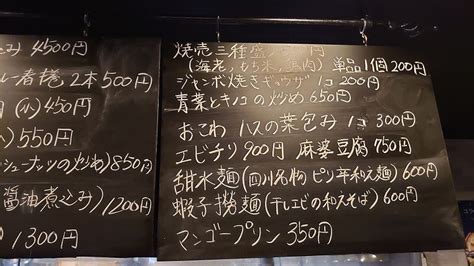 込み 4500円
春捲 2本 500円
(小) 450円
) 550円
シューナッツの炒め) 850円
醤油煮込み) 1200円
1300円
焼売三種盛 円
(海老、もち米、肉) 単品1個 200円
ジャンボ焼きギョウザ 1コ 200円
青菜とキノコの炒め 650円
おこわ ハスの葉包み 1コ 300円
エビチリ 900円 麻婆豆腐 750円
甜水麺(四川名物 ピリ辛和え麺) 600円
蝦子撈麺(干しエビの和えそば) 600円
マンゴープリン 350円